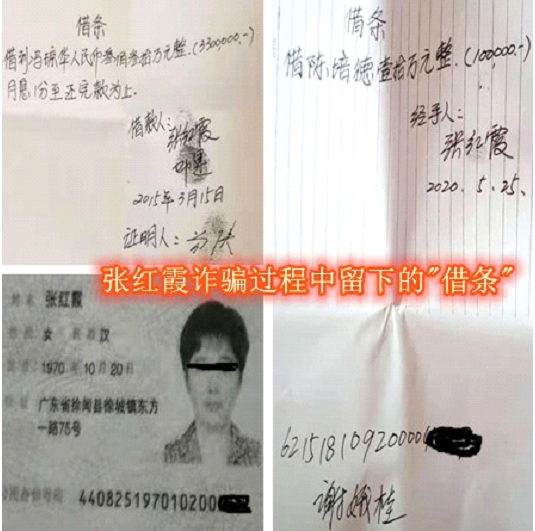 借条
借到冯琼华人民币叁佰叁拾万元整.(3300000.-)
月息1份至还完款为止.
借款人:
张红霞
2015年3月15日
证明人:
借条
借陈培德壹拾万元整.(100000.-)
经手人:
张红霞
2020.5.25.
张红霞诈骗过程中留下的"借条"
姓名 张红霞
性别 女 民族 汉
出生 1970年10月20日
住址 广东省徐闻县徐城镇东方
一路75号
公民身份号码 44082519701020
621518109200004
谢娥桂